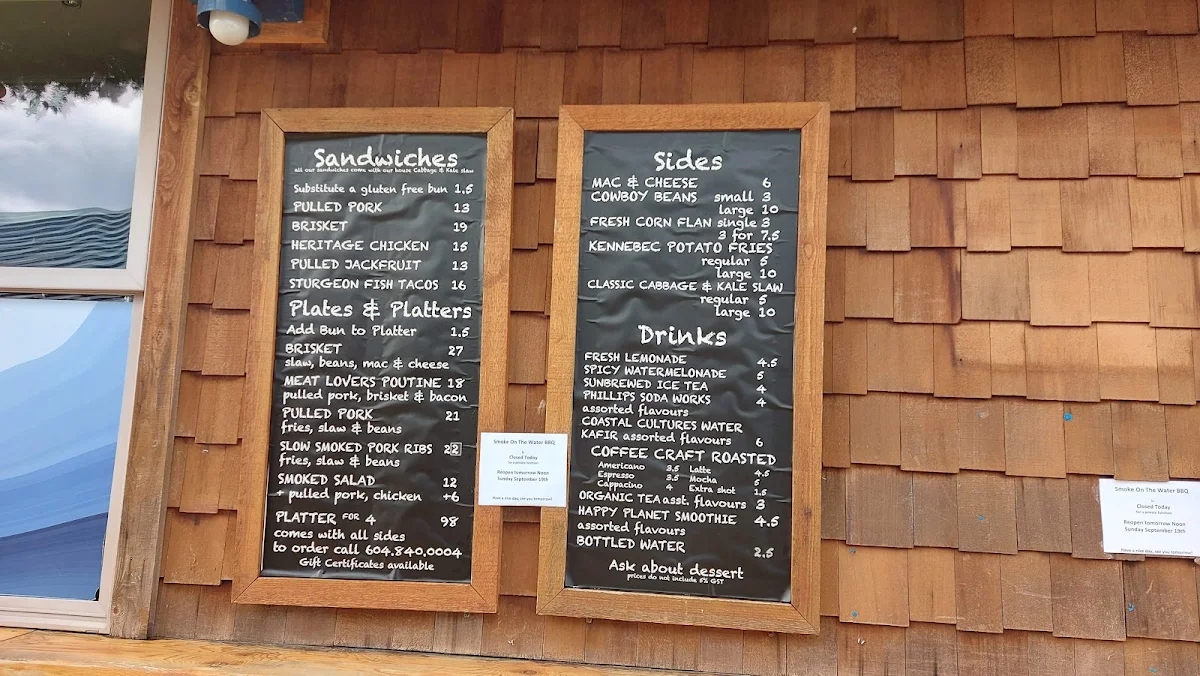 Sandwiches
all our sandwiches come with our house Cabbage & Kale slaw
Substitute a gluten free bun 1.5
PULLED PORK 13
BRISKET 19
HERITAGE CHICKEN 15
PULLED JACKFRUIT 13
STURGEON FISH TACOS 16
Plates & Platters
Add Bun to Platter 1.5
BRISKET 27
slaw, beans, mac & cheese
MEAT LOVERS POUTINE 18
pulled pork, brisket & bacon
PULLED PORK 21
fries, slaw & beans
SLOW SMOKED PORK RIBS 22
fries, slaw & beans
SMOKED SALAD 12
+ pulled pork, chicken +6
PLATTER FOR 4 98
comes with all sides
to order call 604.840.0004
Gift Certificates available
Smoke On The Water BBQ
is
Closed Today
for a private function
Reopen tomorrow Noon
Sunday September 19th
Have a nice day, see you tomorrow!
Sides
MAC & CHEESE 6
COWBOY BEANS small 3
large 10
FRESH CORN FLAN single 3
3 for 7.5
KENNEBEC POTATO FRIES
regular 5
large 10
CLASSIC CABBAGE & KALE SLAW
regular 5
large 10
Drinks
FRESH LEMONADE 4.5
SPICY WATERMELONADE 5
SUNBREWED ICE TEA 4
PHILLIPS SODA WORKS 4
assorted flavours
COASTAL CULTURES WATER
KAFIR assorted flavours 6
COFFEE CRAFT ROASTED
Americano 3.5 Latte 4.5
Espresso 3.5 Mocha 5
Cappacino 4 Extra shot 1.5
ORGANIC TEA asst. flavours 3
HAPPY PLANET SMOOTHIE 4.5
assorted flavours
BOTTLED WATER 2.5
Ask about dessert
prices do not include 5% GST
Smoke On The Water BBQ
is
Closed Today
for a private function
Reopen tomorrow Noon
Sunday September 19th
Have a nice day, see you tomorrow!